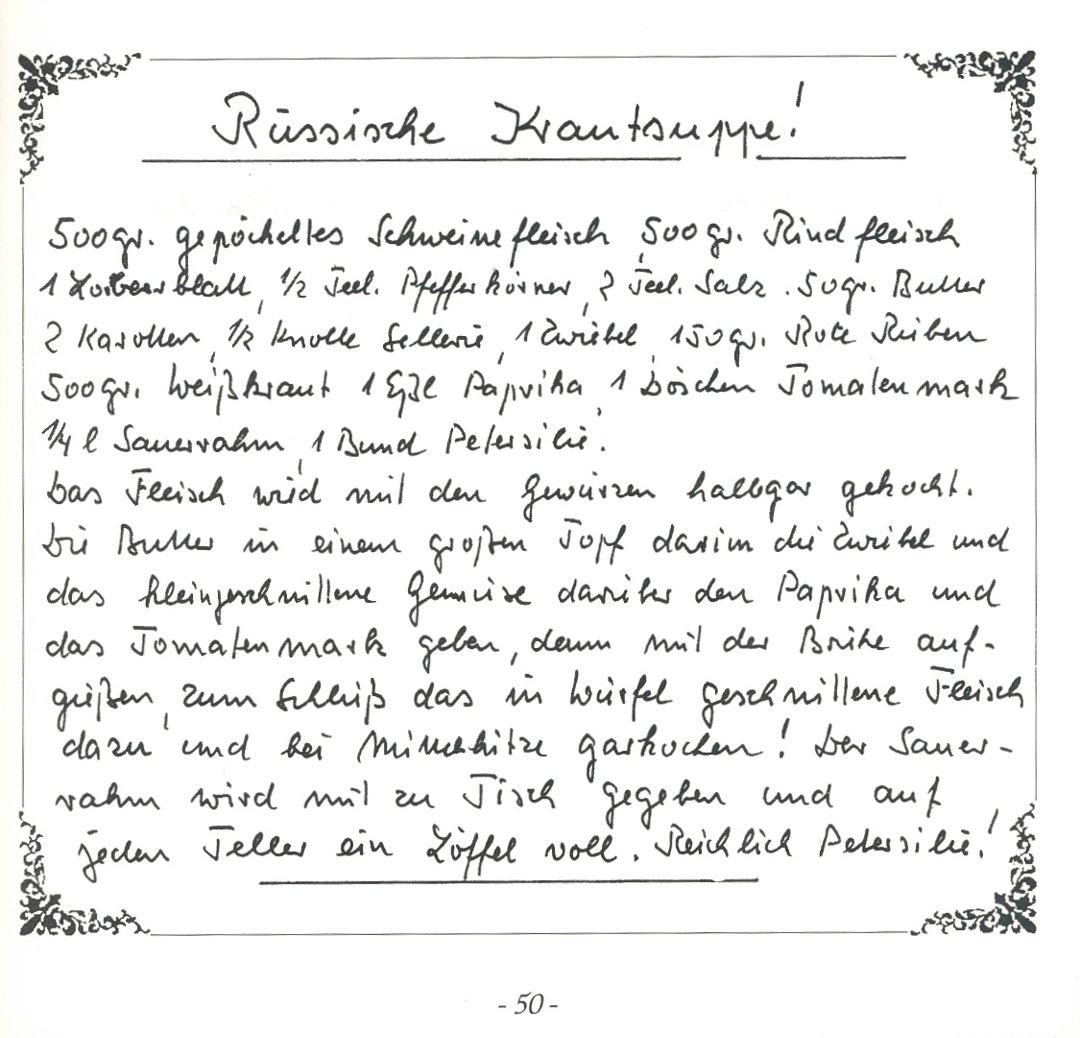 Russische Krautsuppe!
500gr. gepöckeltes Schweinefleisch, 500gr. Rindfleisch
1 Lorbeerblatt, 1/2 Teel. Pfefferkörner, 2 Teel. Salz. 50gr. Butter
2 Karotten, 1/2 Knolle Sellerie, 1 Zwiebel, 150gr. Rote Rüben
500gr. Weißkraut 1 Eßl Paprika, 1 Döschen Tomatenmark
1/4 l Sauerrahm, 1 Bund Petersilie.
Das Fleisch wird mit den Gewürzen halbgar gekocht.
Die Butter in einem großen Topf darin die Zwiebel und
das kleingeschnittene Gemüse darüber den Paprika und
das Tomatenmark geben, dann mit der Brühe auf-
gießen, zum Schluß das in Würfel geschnittene Fleisch
dazu und bei Mittelhitze garkochen! Der Sauer-
rahm wird mit zu Tisch gegeben und auf
jeden Teller ein Löffel voll. Reichlich Petersilie!
- 50 -